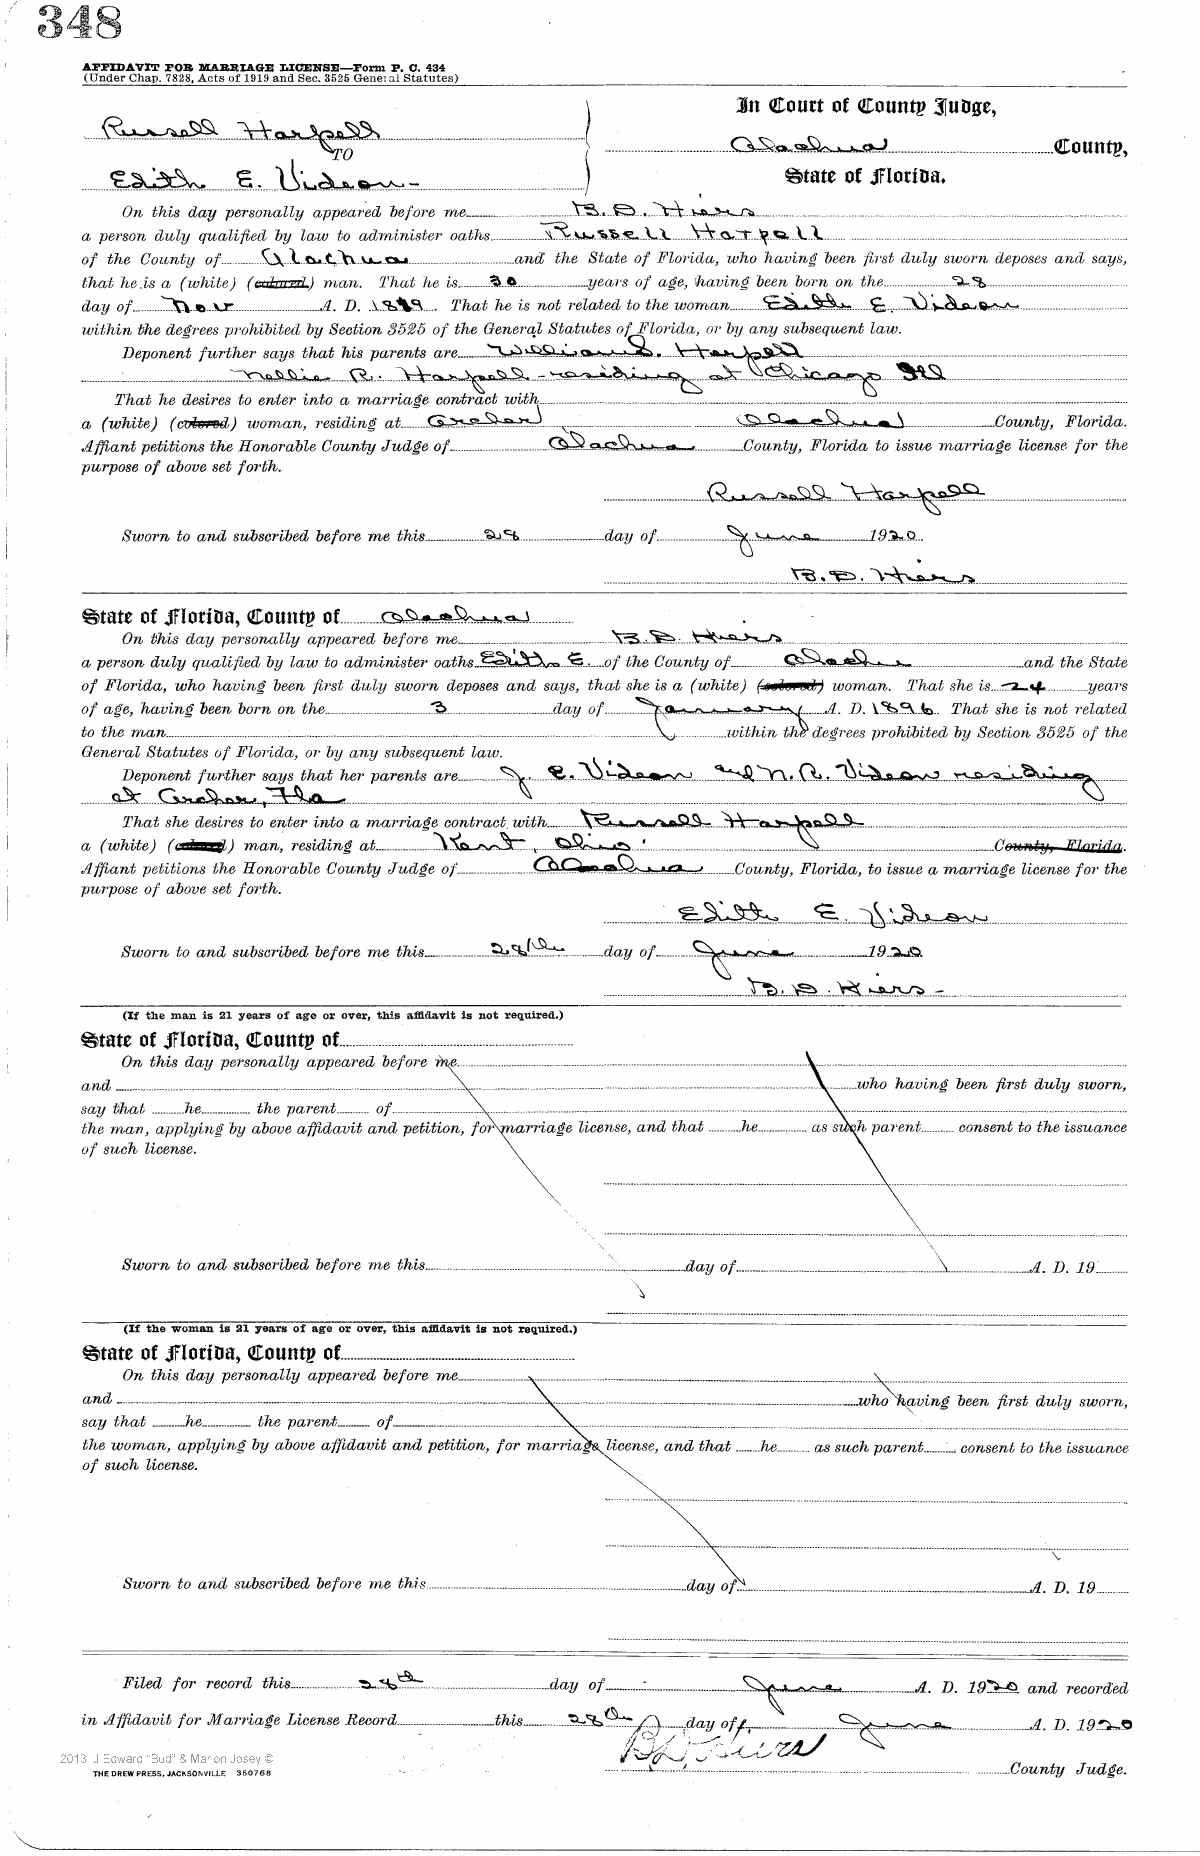 348
AFFIDAVIT FOR MARRIAGE LICENSE—Form P. C. 434
(Under Chap. 7828, Acts of 1919 and Sec. 3525 General Statutes)
Russell Harpell
TO
Edith E. Videon-
In Court of County Judge,
Alachua County,
State of Florida.
On this day personally appeared before me B. D. Hiers
a person duly qualified by law to administer oaths Russell Harpell
of the County of Alachua and the State of Florida, who having been first duly sworn deposes and says,
that he is a (white) (colored) man. That he is 30 years of age, having been born on the 28
day of Nov A. D. 1889. That he is not related to the woman Edith E. Videon
within the degrees prohibited by Section 3525 of the General Statutes of Florida, or by any subsequent law.
Deponent further says that his parents are William S. Harpell
Nellie R. Harpell - residing at Chicago Ill
That he desires to enter into a marriage contract with
a (white) (colored) woman, residing at Archer Alachua County, Florida.
Affiant petitions the Honorable County Judge of Alachua County, Florida to issue marriage license for the
purpose of above set forth.
Russell Harpell
Sworn to and subscribed before me this 28 day of June 1920.
B. D. Hiers
State of Florida, County of Alachua
On this day personally appeared before me B. D. Hiers
a person duly qualified by law to administer oaths Edith E. of the County of Alachua and the State
of Florida, who having been first duly sworn deposes and says, that she is a (white) (colored) woman. That she is 24 years
of age, having been born on the 3 day of January A. D. 1896 That she is not related
to the man within the degrees prohibited by Section 3525 of the
General Statutes of Florida, or by any subsequent law.
Deponent further says that her parents are J. E. Videon and N. R. Videon residing
at Archer, Fla
That she desires to enter into a marriage contract with Russell Harpell
a (white) (colored) man, residing at Kent, Ohio County, Florida.
Affiant petitions the Honorable County Judge of Alachua County, Florida, to issue a marriage license for the
purpose of above set forth.
Edith E. Videon
Sworn to and subscribed before me this 28th day of June 1920
B. D. Hiers -
(If the man is 21 years of age or over, this affidavit is not required.)
State of Florida, County of
On this day personally appeared before me
and who having been first duly sworn,
say that he the parent of
the man, applying by above affidavit and petition, for marriage license, and that he as such parent consent to the issuance
of such license.
Sworn to and subscribed before me this day of A. D. 19
(If the woman is 21 years of age or over, this affidavit is not required.)
State of Florida, County of
On this day personally appeared before me
and who having been first duly sworn,
say that he the parent of
the woman, applying by above affidavit and petition, for marriage license, and that he as such parent consent to the issuance
of such license.
Sworn to and subscribed before me this day of A. D. 19
Filed for record this 28th day of June A. D. 1920 and recorded
in Affidavit for Marriage License Record this 28th day of June A. D. 1920
B. D. Hiers
County Judge.
2013 J Edward "Bud" & Marion Josey ©
THE DREW PRESS, JACKSONVILLE 350768